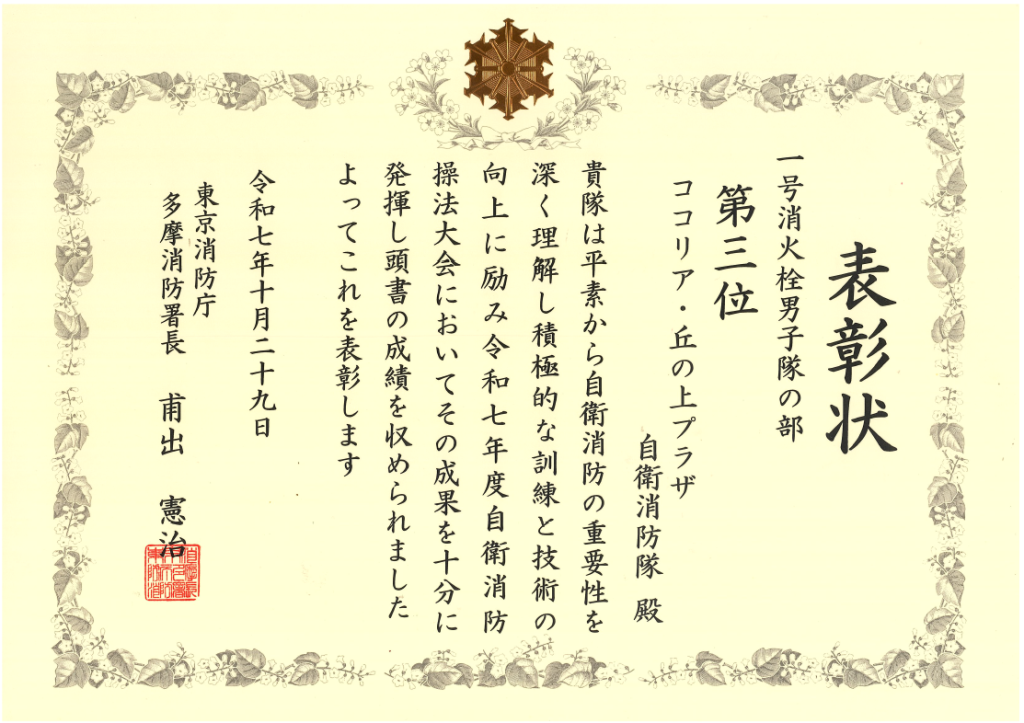 表彰状
一号消火栓男子隊の部
第三位
ココリア・丘の上プラザ
自衛消防隊 殿
貴隊は平素から自衛消防の重要性を
深く理解し積極的な訓練と技術の
向上に励み令和七年度自衛消防
操法大会においてその成果を十分に
発揮し頭書の成績を収められました
よってこれを表彰します
令和七年十月二十九日
東京消防庁
多摩消防署長 甫出 憲治